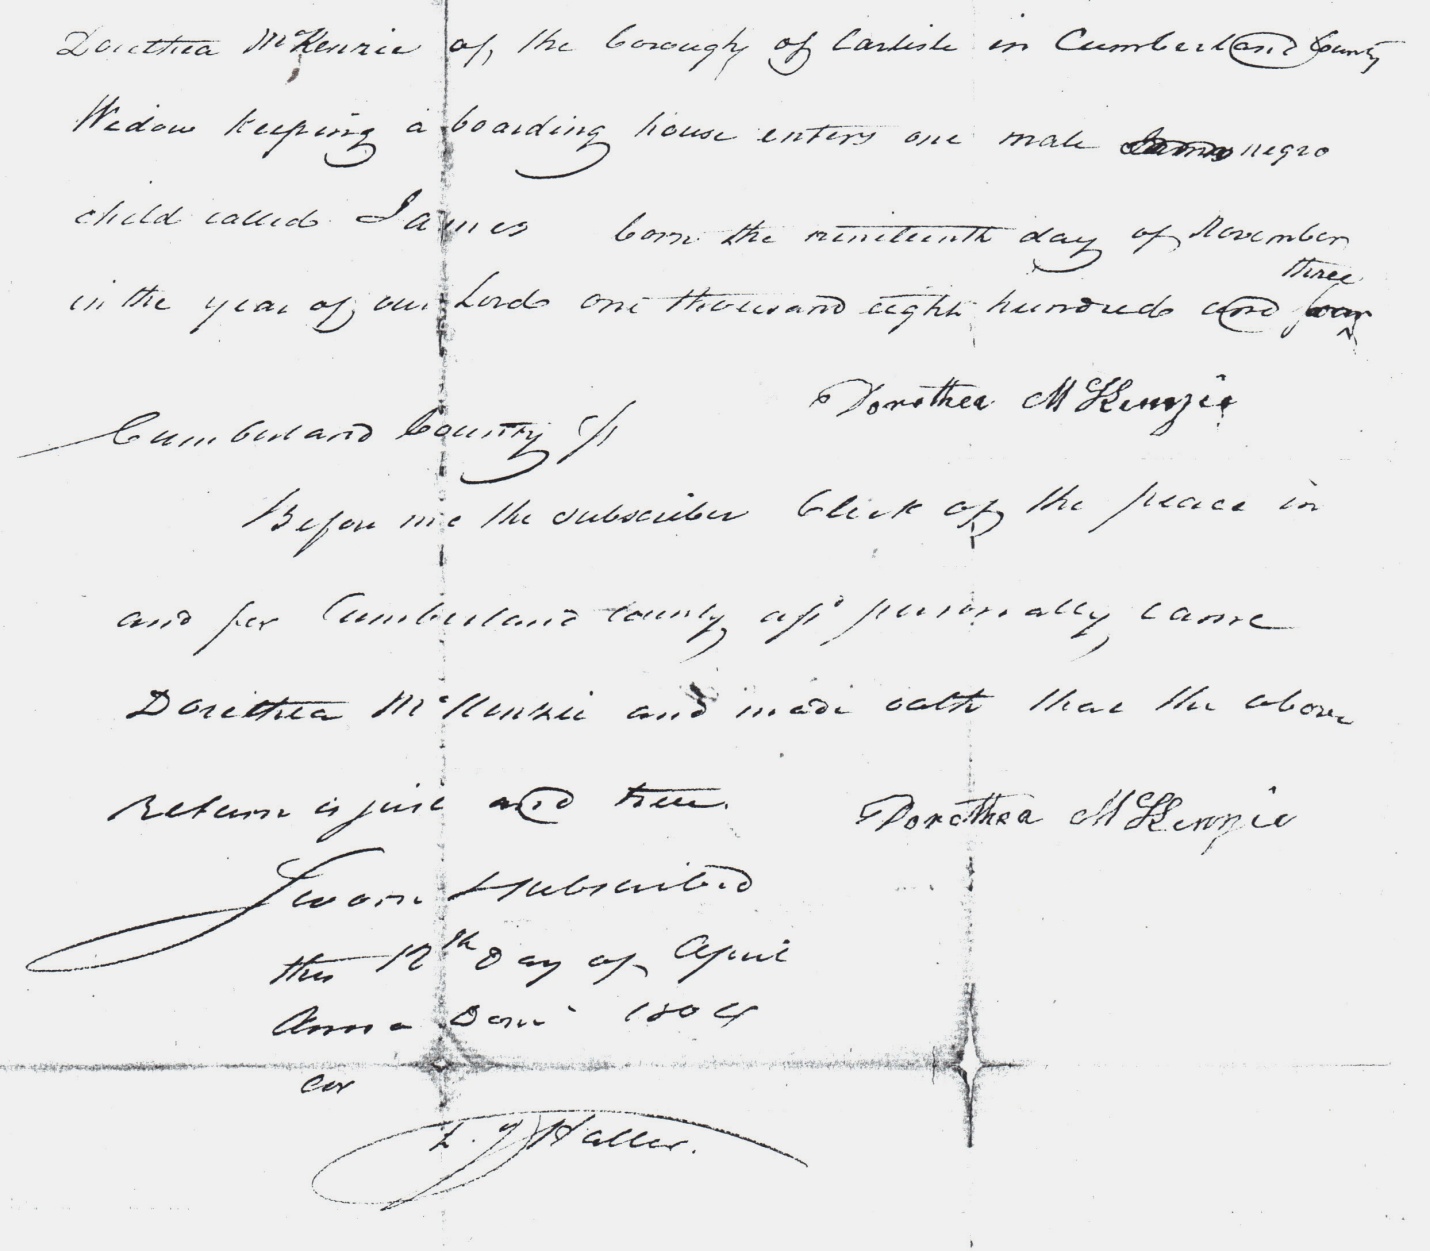 Dorethea McKenzie of the borough of Carlisle in Cumberland County
Widow keeping a boarding house enters one male James negro
child called James born the nineteenth day of November
three
in the year of our Lord one thousand eight hundred and four
Dorothea McKenzie
Cumberland County ss
Before me the subscriber Clerk of the peace in
and for Cumberland County afsd personally came
Dorethea McKenzie and made oath that the above
Return is just and true.
Dorothea McKenzie
Sworn & subscribed
this 12th Day of April
Anno Domi 1804
cor
Haller.